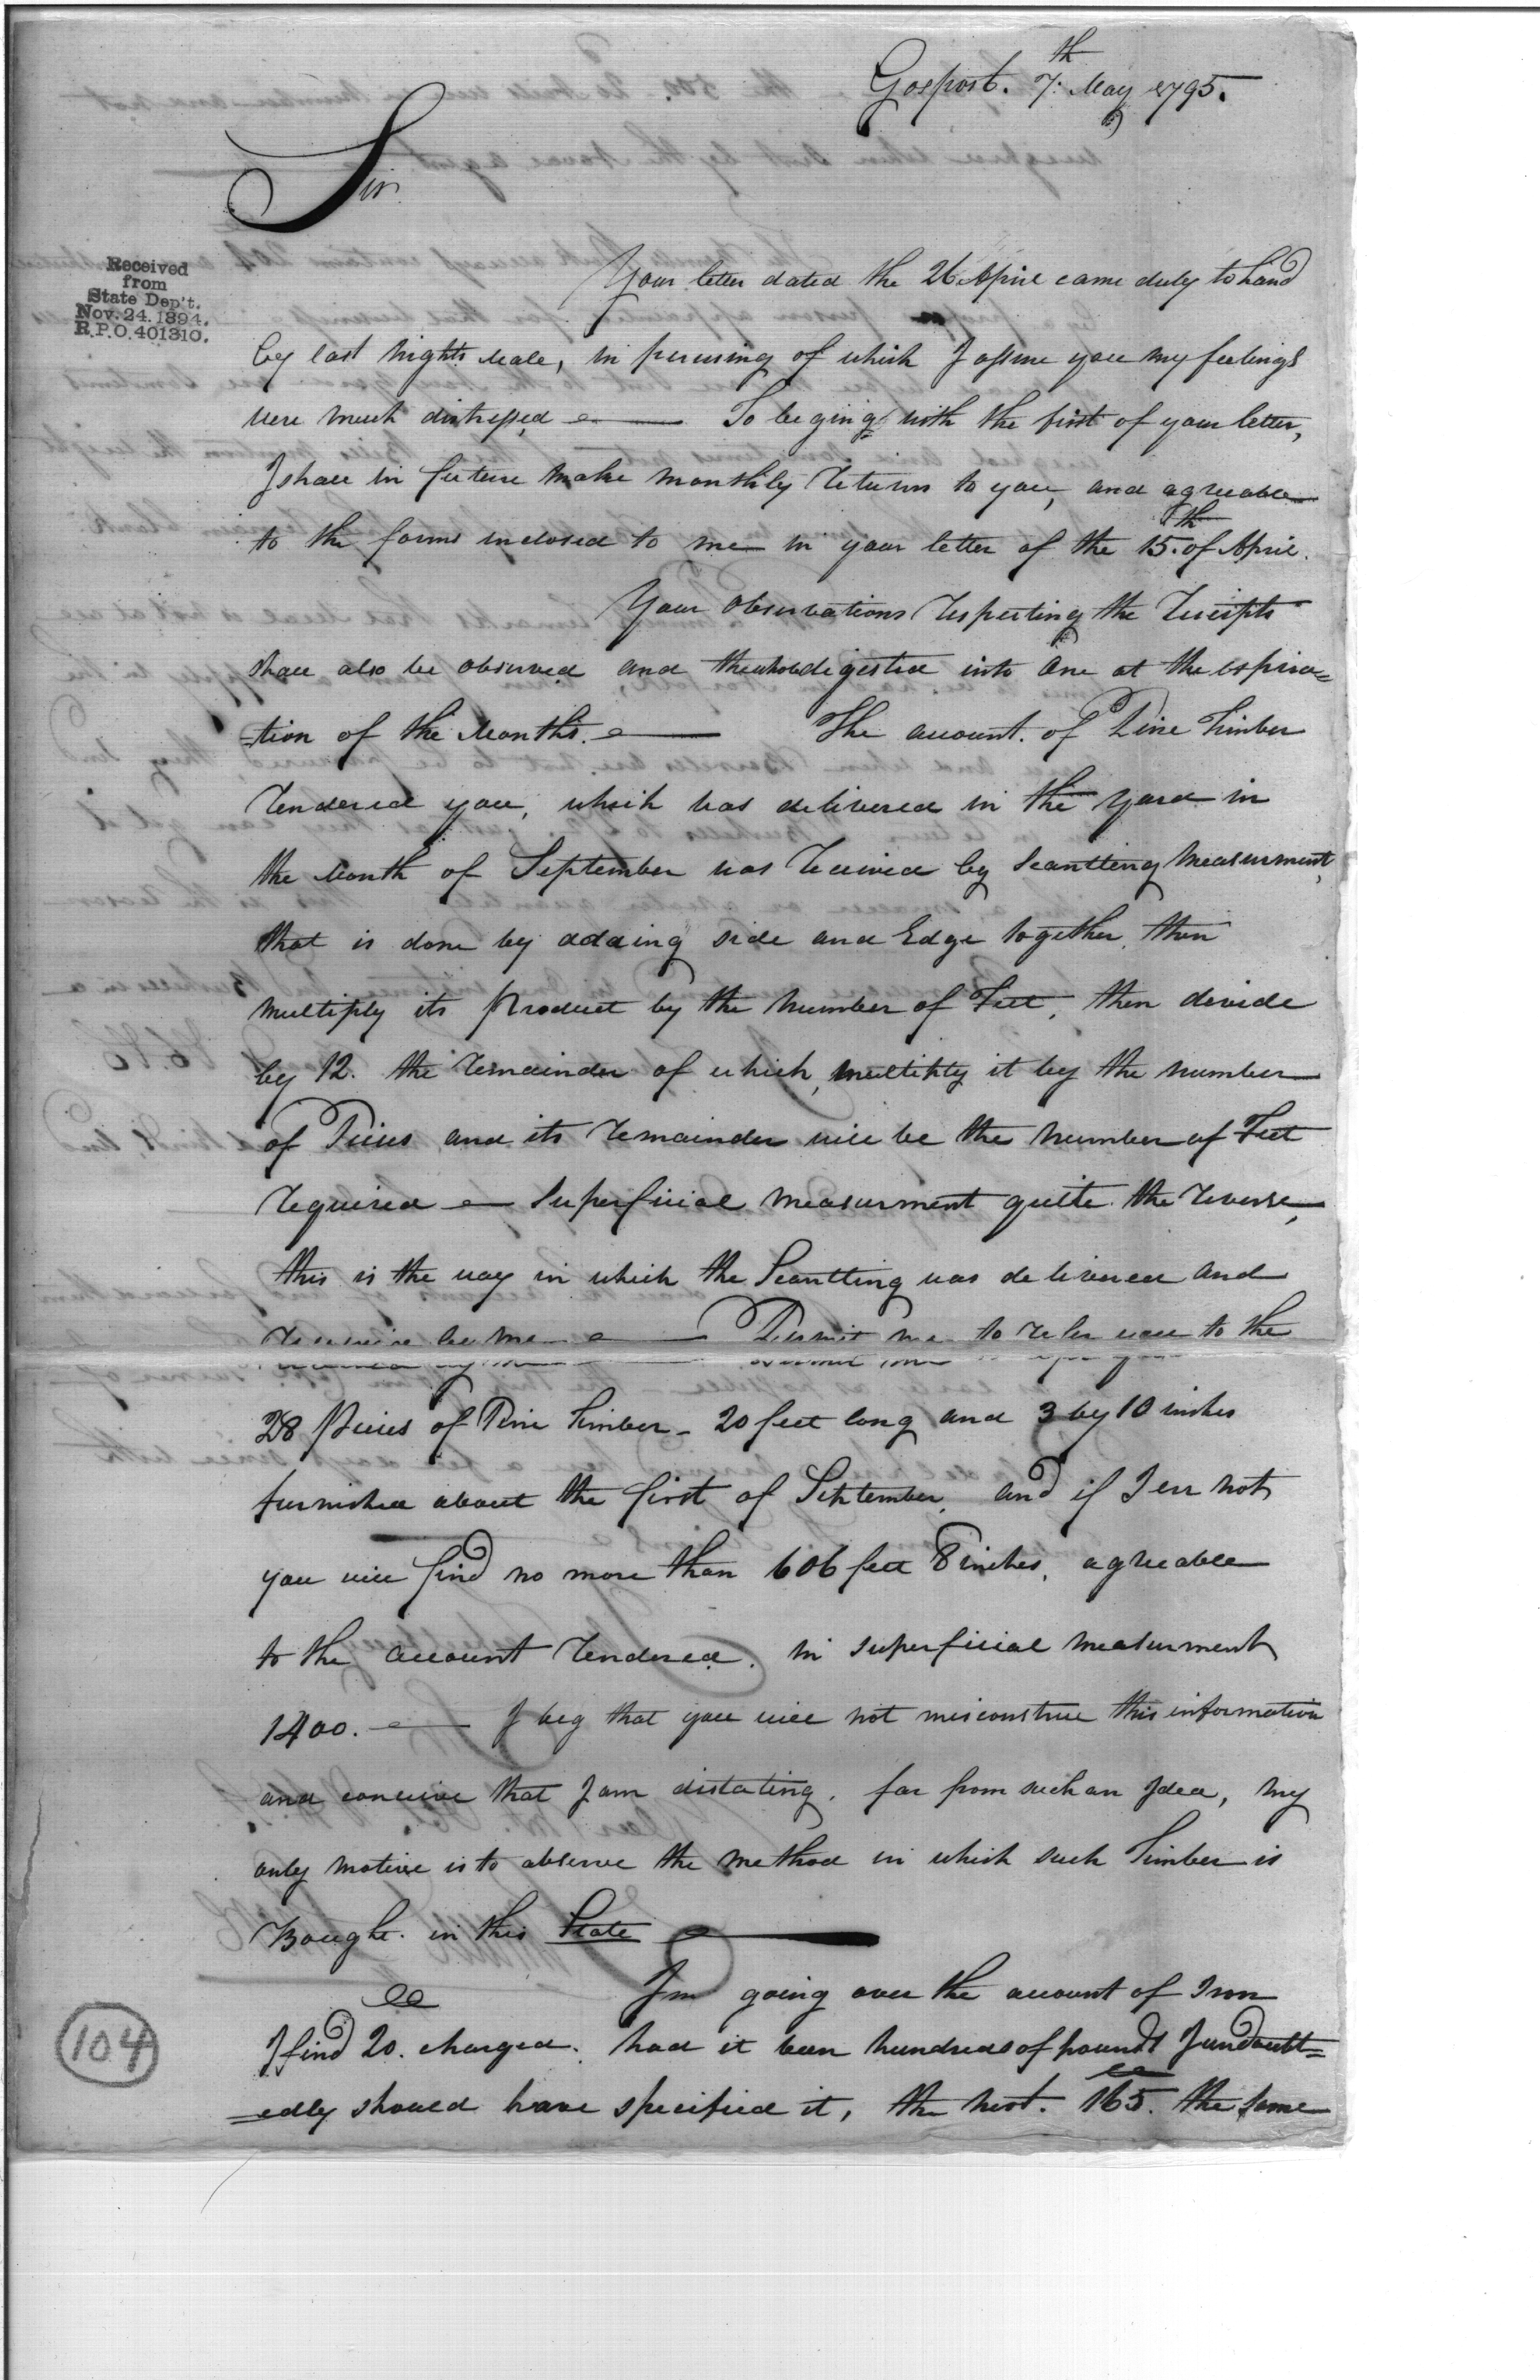 Gosport. 7th May 1795.
Sir
Received
from
State Dep't.
Nov. 24. 1894.
R.P.O. 401310.
Your letter dated the 26 April came duly to hand
by last nights Male, in perusing of which I assure you my feelings
were much distressed — To beging with the first of your letter,
I shall in future make monthly returns to you, and agreeable
to the forms inclosed to me in your letter of the 15th of April.
Your observations respecting the Receipts
shall also be observed and the whole digested into One at the expira=
=tion of the Months. — The account. of Pine Timber
rendered you, which was delivered in the yard in
the Month of September was received by Scantling measurment,
that is done by adding side and Edge together, then
multiply its Product by the number of Feet, then devide
by 12. the remainder of which, multiply it by the number
of Pieces, and its remainder will be the number of Feet
required — Superficial measurment quite the reverse,
this is the way in which the Scantling was delivered and
received by me — Permit me to refer you to the
28 Pieces of Pine Timber - 20 feet long and 3 by 10 inches
furnished about the first of September, and if I err not
you will find no more than 606 feet 8 inches, agreeable
to the account rendered. in superficial measurment
1400. — I beg that you will not misconstrue this information
and conceive that I am dictating. far from such an Idea, my
only motive is to observe the method in which such Timber is
Bought. in this State —
In going over the account of Iron
I find 20. charged. had it been hundreds of pounds I undoubt=
=edly should have specified it, the next. 165. the same
104